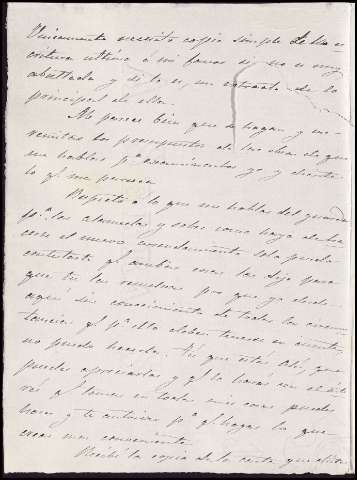 Unicamente necesito copia simple de la es
critura última a mi favor si no es muy
abultada y si lo es, un extracto de lo
principal de ella.
Me parece bien que se hagan y me
remitas los presupuestos de las obras de que
me hablas pª y decirte
lo q.e me parezca
Respecto á lo que me hablas del guarda
pª las y sobre como haya de
con el nuevo arrendamiento solo puedo
contestarte q.e ambas cosas las dejo para
que tú las resuelvas por que yo desde
aquí sin conocimiento de todas las circuns
tancias q.e pª ello deben tenerse en cuenta,
no puedo hacerlo. Tú que estás ahí, que
puedes apreciarlas y q.e lo harás con el inte
rés q.e tomas en todas mis cosas puedes
hacer y te autorizo pª q.e hagas lo que
creas mas conveniente.
Recibí la copia de la carta que